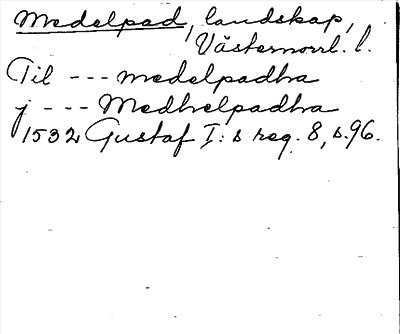 Medelpad, landskap,
Västernorrl. l.
Til --- medelpadha
j --- Medhelpadha
1532 Gustaf I:s reg. 8, s.96.